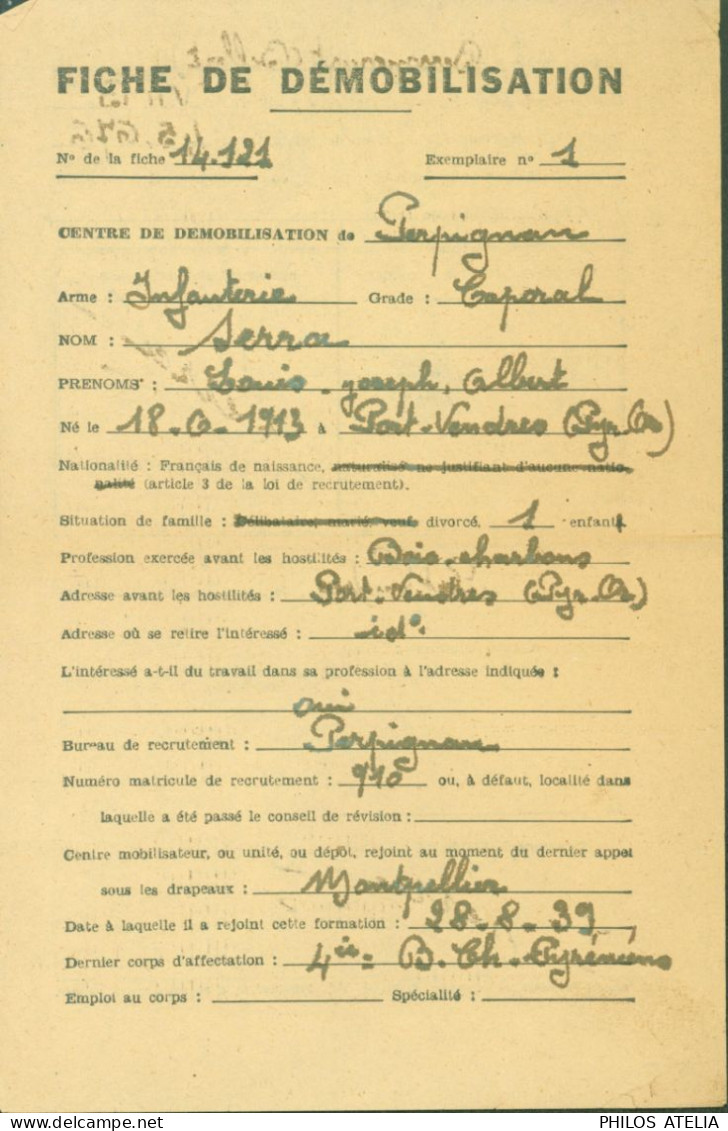 FICHE DE DÉMOBILISATION
N° de la fiche 14.121 Exemplaire n° 1
CENTRE DE DEMOBILISATION de Perpignan
Arme : Infanterie Grade : Caporal
NOM : Serra
PRENOMS : Louis - Joseph, Albert
Né le 18-6-1913 à Port-Vendres (Pyr. Or)
Nationalité : Français de naissance, naturalisé ne justifiant d'aucune natio-
nalité (article 3 de la loi de recrutement).
Situation de famille : Célibataire, marié, veuf, divorcé, 1 enfant
Profession exercée avant les hostilités : Bois-charbons
Adresse avant les hostilités : Port-Vendres (Pyr. Or.)
Adresse où se retire l'intéressé : id°
L'intéressé a-t-il du travail dans sa profession à l'adresse indiquée :
oui
Bureau de recrutement : Perpignan
Numéro matricule de recrutement : 910 ou, à défaut, localité dans
laquelle a été passé le conseil de révision :
Centre mobilisateur, ou unité, ou dépôt, rejoint au moment du dernier appel
sous les drapeaux : Montpellier
Date à laquelle il a rejoint cette formation : 28-8-39
Dernier corps d'affectation : 4ie B. Ch. Pyrénéens
Emploi au corps : Spécialité :
PHILOS ATELIA